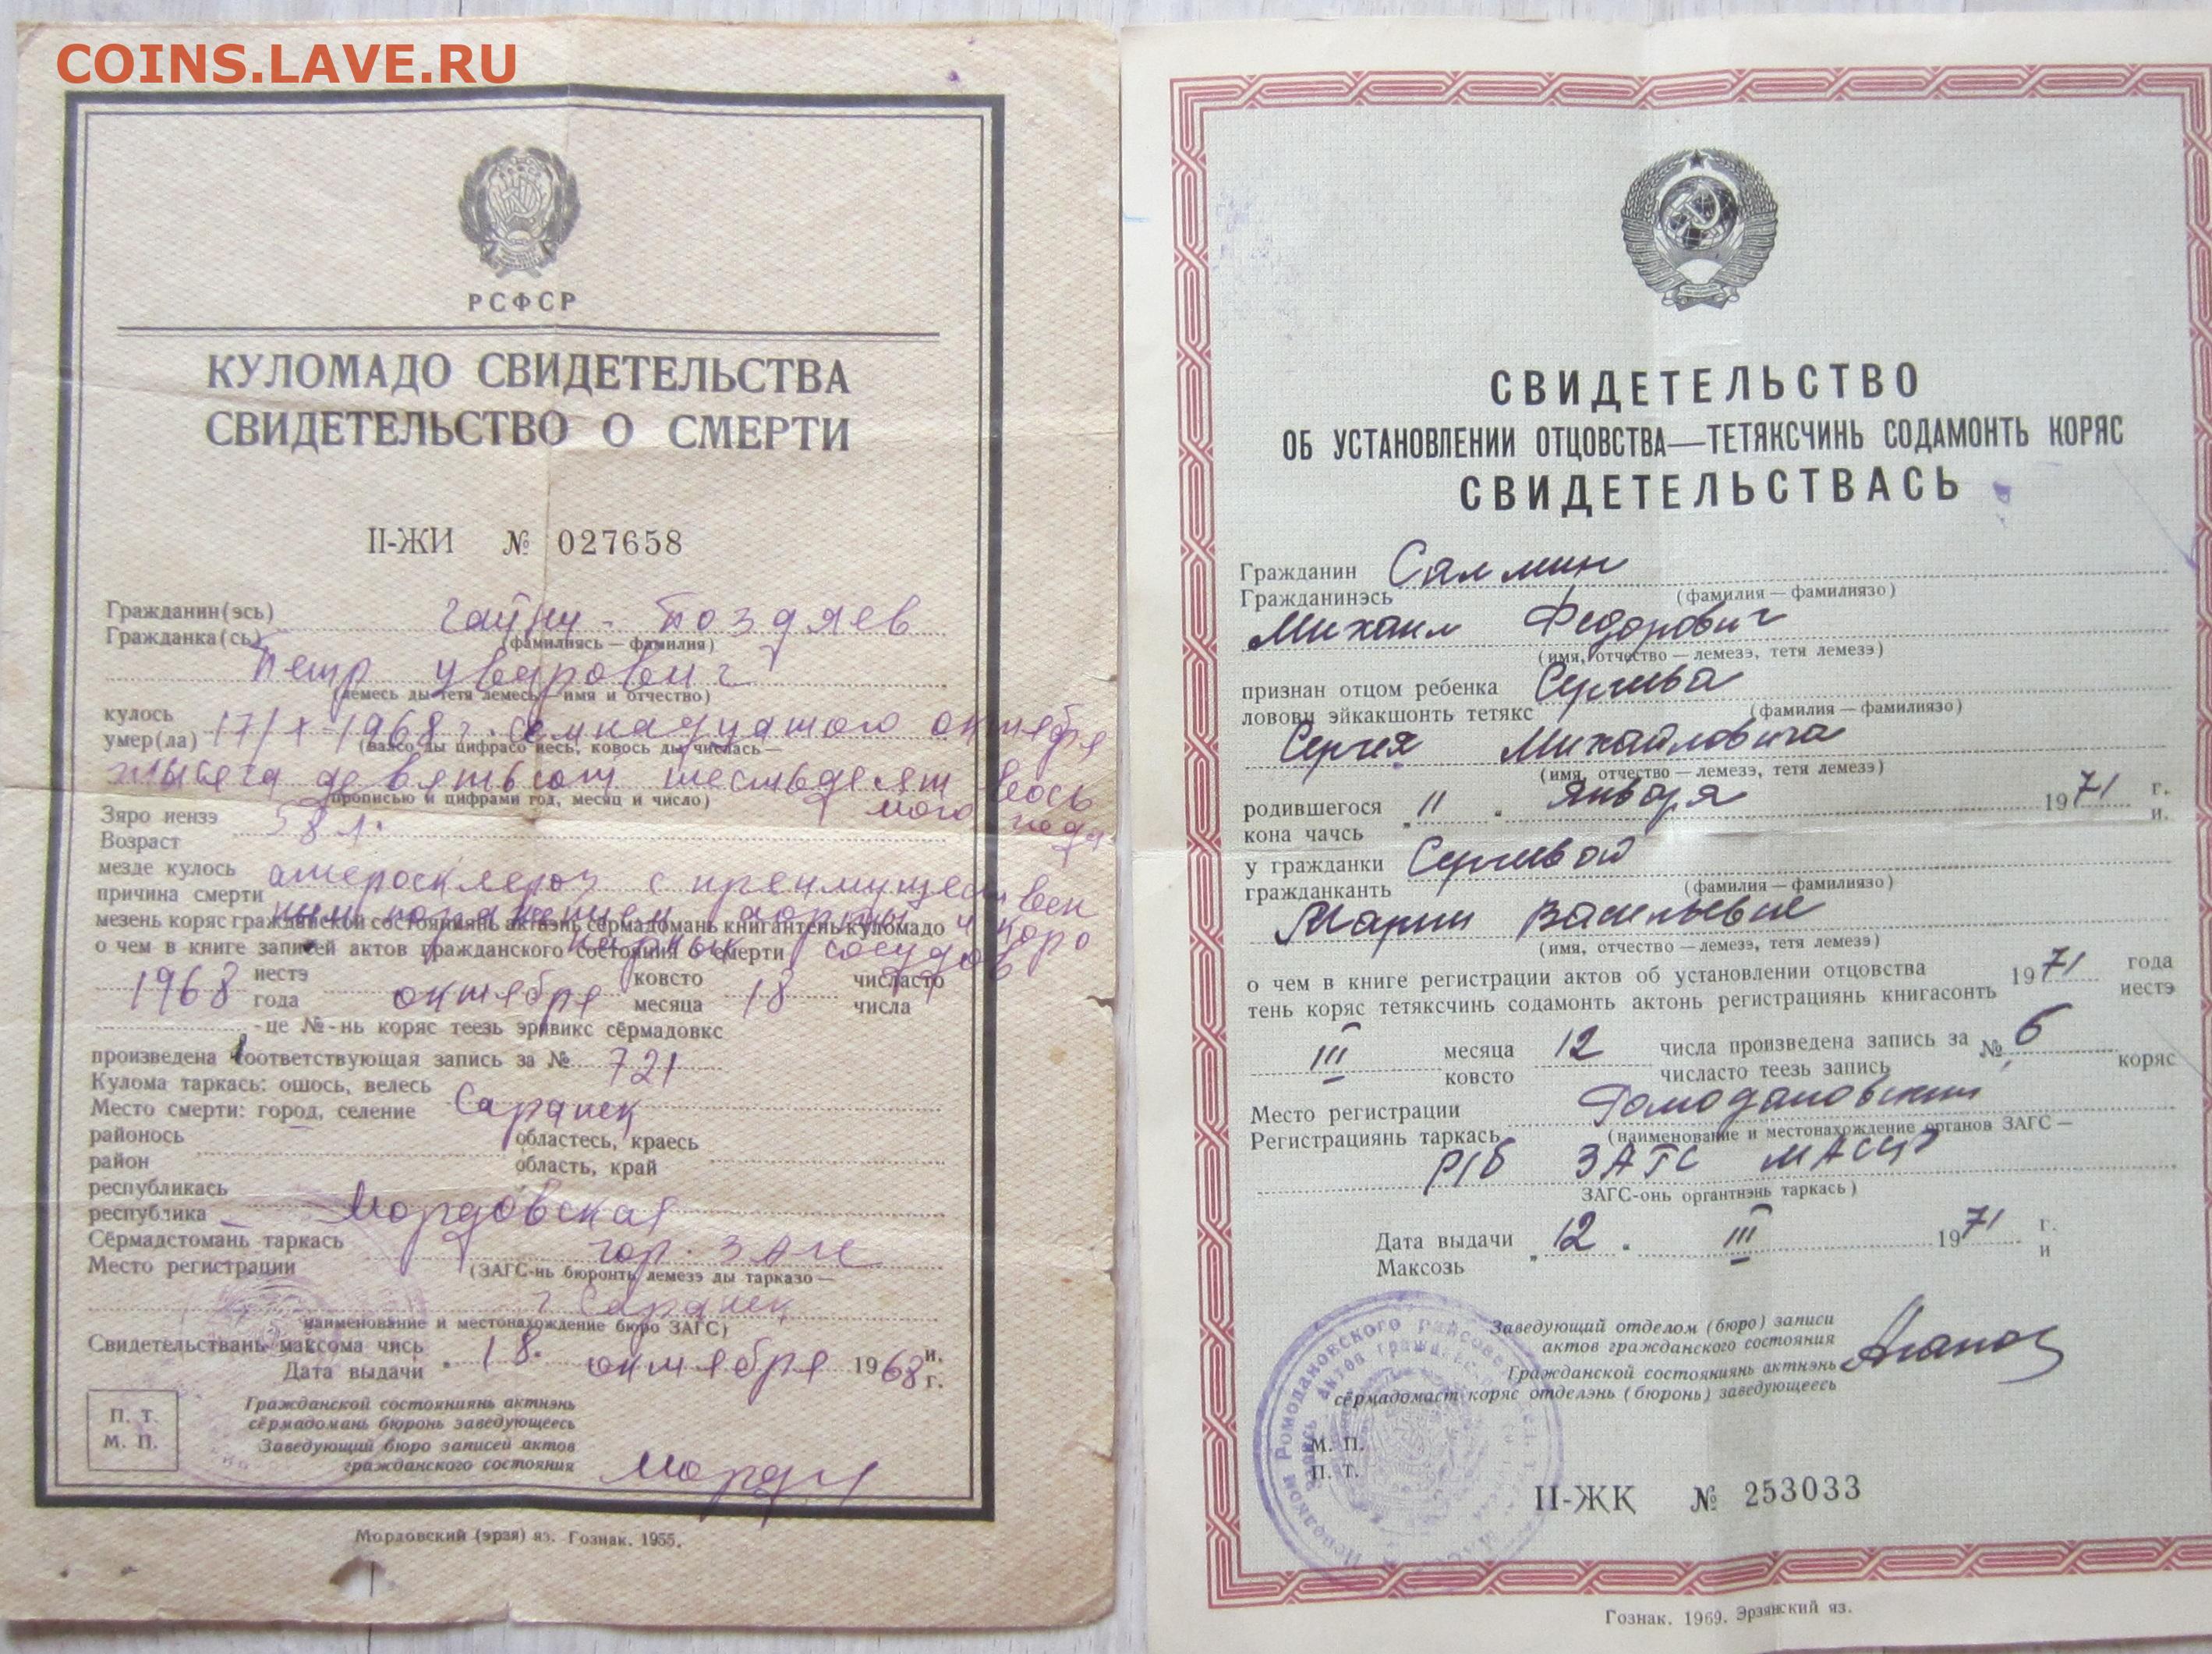 COINS.LAVE.RU
РСФСР
КУЛОМАДО СВИДЕТЕЛЬСТВА
СВИДЕТЕЛЬСТВО О СМЕРТИ
II-ЖИ № 027658
Гражданин(эсь)
Гражданка(сь)
Поздяев
(фамилиясь — фамилия)
Петр Уварович
(лемесь ды тетя лемесь — имя и отчество)
кулось
умер(ла) 17/X-1968 г. Семнадцатого октября
(валсо ды цифрасо иесь, ковось ды числась —
тысяча девятьсот шестьдесят восьмого года
прописью и цифрами год, месяц и число)
Зяро иензэ
Возраст 58 л.
мезде кулось
причина смерти атеросклероз с преимуществен
ным поражением аорты и коро
мезень коряс гражданской состояниянь актнэнь сёрмадомань книгантень куломадо
о чем в книге записей актов гражданского состояния о смерти
нарных сосудов
1968 иестэ года октября ковсто месяца 18 числасто числа
-це №-нь коряс теезь эрявикс сёрмадовкс
произведена соответствующая запись за № 721
Кулома таркась: ошось, велесь
Место смерти: город, селение Саранск
районось областесь, краесь
район область, край
республикась
республика Мордовская
Сёрмадстомань таркась
Место регистрации гор. ЗАГС
(ЗАГС-нь бюронть лемезэ ды тарказо —
г Саранск
наименование и местонахождение бюро ЗАГС)
Свидетельствань максома чись
Дата выдачи 18. октября 1968 и. г.
П. Т.
М. П.
Гражданской состояниянь актнэнь
сёрмадомань бюронь заведующеесь
Заведующий бюро записей актов
гражданского состояния
Мордовский (эрзя) яз. Гознак. 1955.
СВИДЕТЕЛЬСТВО
ОБ УСТАНОВЛЕНИИ ОТЦОВСТВА—ТЕТЯКСЧИНЬ СОДАМОНТЬ КОРЯС
СВИДЕТЕЛЬСТВАСЬ
Гражданин Салмин
Гражданинэсь (фамилия — фамилиязо)
Михаил Федорович
(имя, отчество — лемезэ, тетя лемезэ)
признан отцом ребенка Сергеева
ловови эйкакшонть тетякс (фамилия — фамилиязо)
Сергея Михайловича
(имя, отчество — лемезэ, тетя лемезэ)
родившегося 11 января 1971 г.
кона чачсь и.
у гражданки Сергеевой
гражданканть (фамилия — фамилиязо)
Марии Васильевне
(имя, отчество — лемезэ, тетя лемезэ)
о чем в книге регистрации актов об установлении отцовства 1971 года
тень коряс тетяксчинь содамонть актонь регистрациянь книгасонть иестэ
III месяца 12 числа произведена запись за № 6
ковсто числасто теезь запись коряс
Место регистрации Ромодановский
Регистрациянь таркась (наименование и местонахождение органов ЗАГС —
р/б ЗАГС МАССР
ЗАГС-онь органтнэнь таркась)
Дата выдачи 12 III 1971 г.
Максозь и
Заведующий отделом (бюро) записи
актов гражданского состояния
Гражданской состояниянь актнэнь
сёрмадомаст коряс отделэнь (бюронь) заведующеесь
М. П.
П. Т.
II-ЖК № 253033
Гознак. 1969. Эрзянский яз.